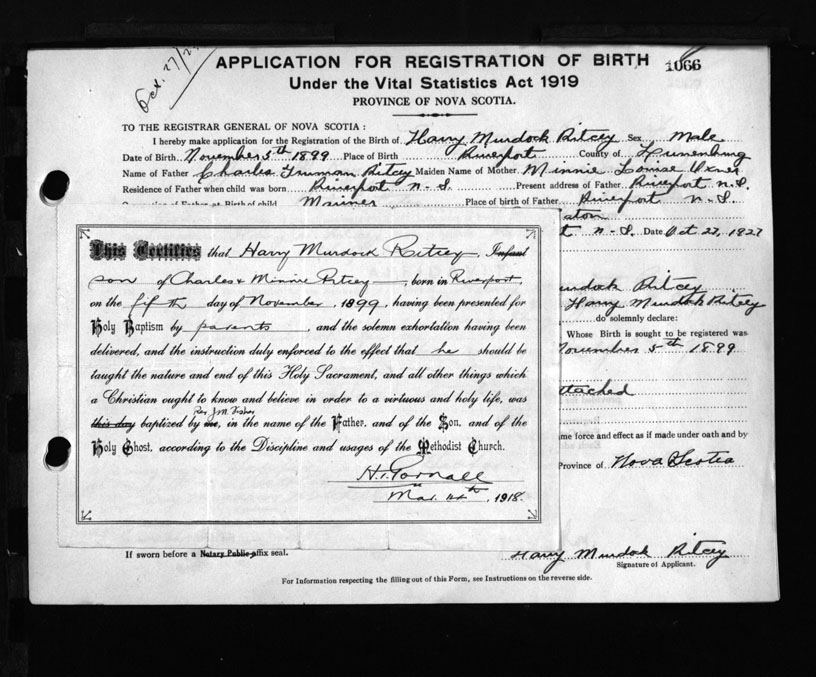 Oct. 27/27
APPLICATION FOR REGISTRATION OF BIRTH 1066
Under the Vital Statistics Act 1919
PROVINCE OF NOVA SCOTIA.
TO THE REGISTRAR GENERAL OF NOVA SCOTIA :
I hereby make application for the Registration of the Birth of Harry Murdock Ritcey Sex Male
Date of Birth November 5th 1899 Place of Birth Riverport County of Lunenburg
Name of Father Charles Truman Ritcey Maiden Name of Mother Minnie Louise Oxner
Residence of Father when child was born Riverport N.S. Present address of Father Riverport N.S.
Occupation of Father at Birth of child Mariner Place of birth of Father Riverport N.S.
N.S. Date Oct 27, 1927
This Certifies that Harry Murdock Ritcey, Infant
son of Charles & Minnie Ritcey, born in Riverport,
on the fifth day of November, 1899, having been presented for
Holy Baptism by parents, and the solemn exhortation having been
delivered, and the instruction duly enforced to the effect that he should be
taught the nature and end of this Holy Sacrament, and all other things which
a Christian ought to know and believe in order to a virtuous and holy life, was
Rev J.M. Fisher
this day baptized by me, in the name of the Father, and of the Son, and of the
Holy Ghost, according to the Discipline and usages of the Methodist Church.
Mar. 1918.
Murdock Ritcey
Harry Murdock Ritcey
do solemnly declare:
Whose Birth is sought to be registered was
November 5th 1899
attached
same force and effect as if made under oath and by
Province of Nova Scotia
If sworn before a Notary Public affix seal.
Harry Murdock Ritcey
Signature of Applicant.
For Information respecting the filling out of this Form, see Instructions on the reverse side.